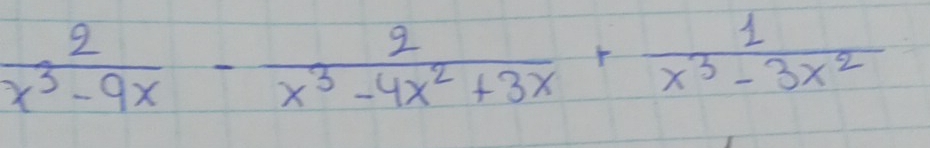 2/(x³ - 9x) - 2/(x³ - 4x² + 3x) + 1/(x³ - 3x²)